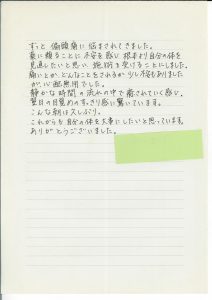 ずっと 偏頭痛に 悩まされてきました。
薬に頼ることに不安を感じ 根本より自分の体を
見直したいと思い 施術を受けることにしました。
痛いとか どんなことをされるか 少し不安もありました
が、心配無用でした。
静かな時間の流れの中で 癒されていく感じ、
翌日の目覚めのすっきり感に驚いています。
こんな朝は久しぶり。
これからも 自分の体を大事にしたいと思っています。
ありがとうございました。